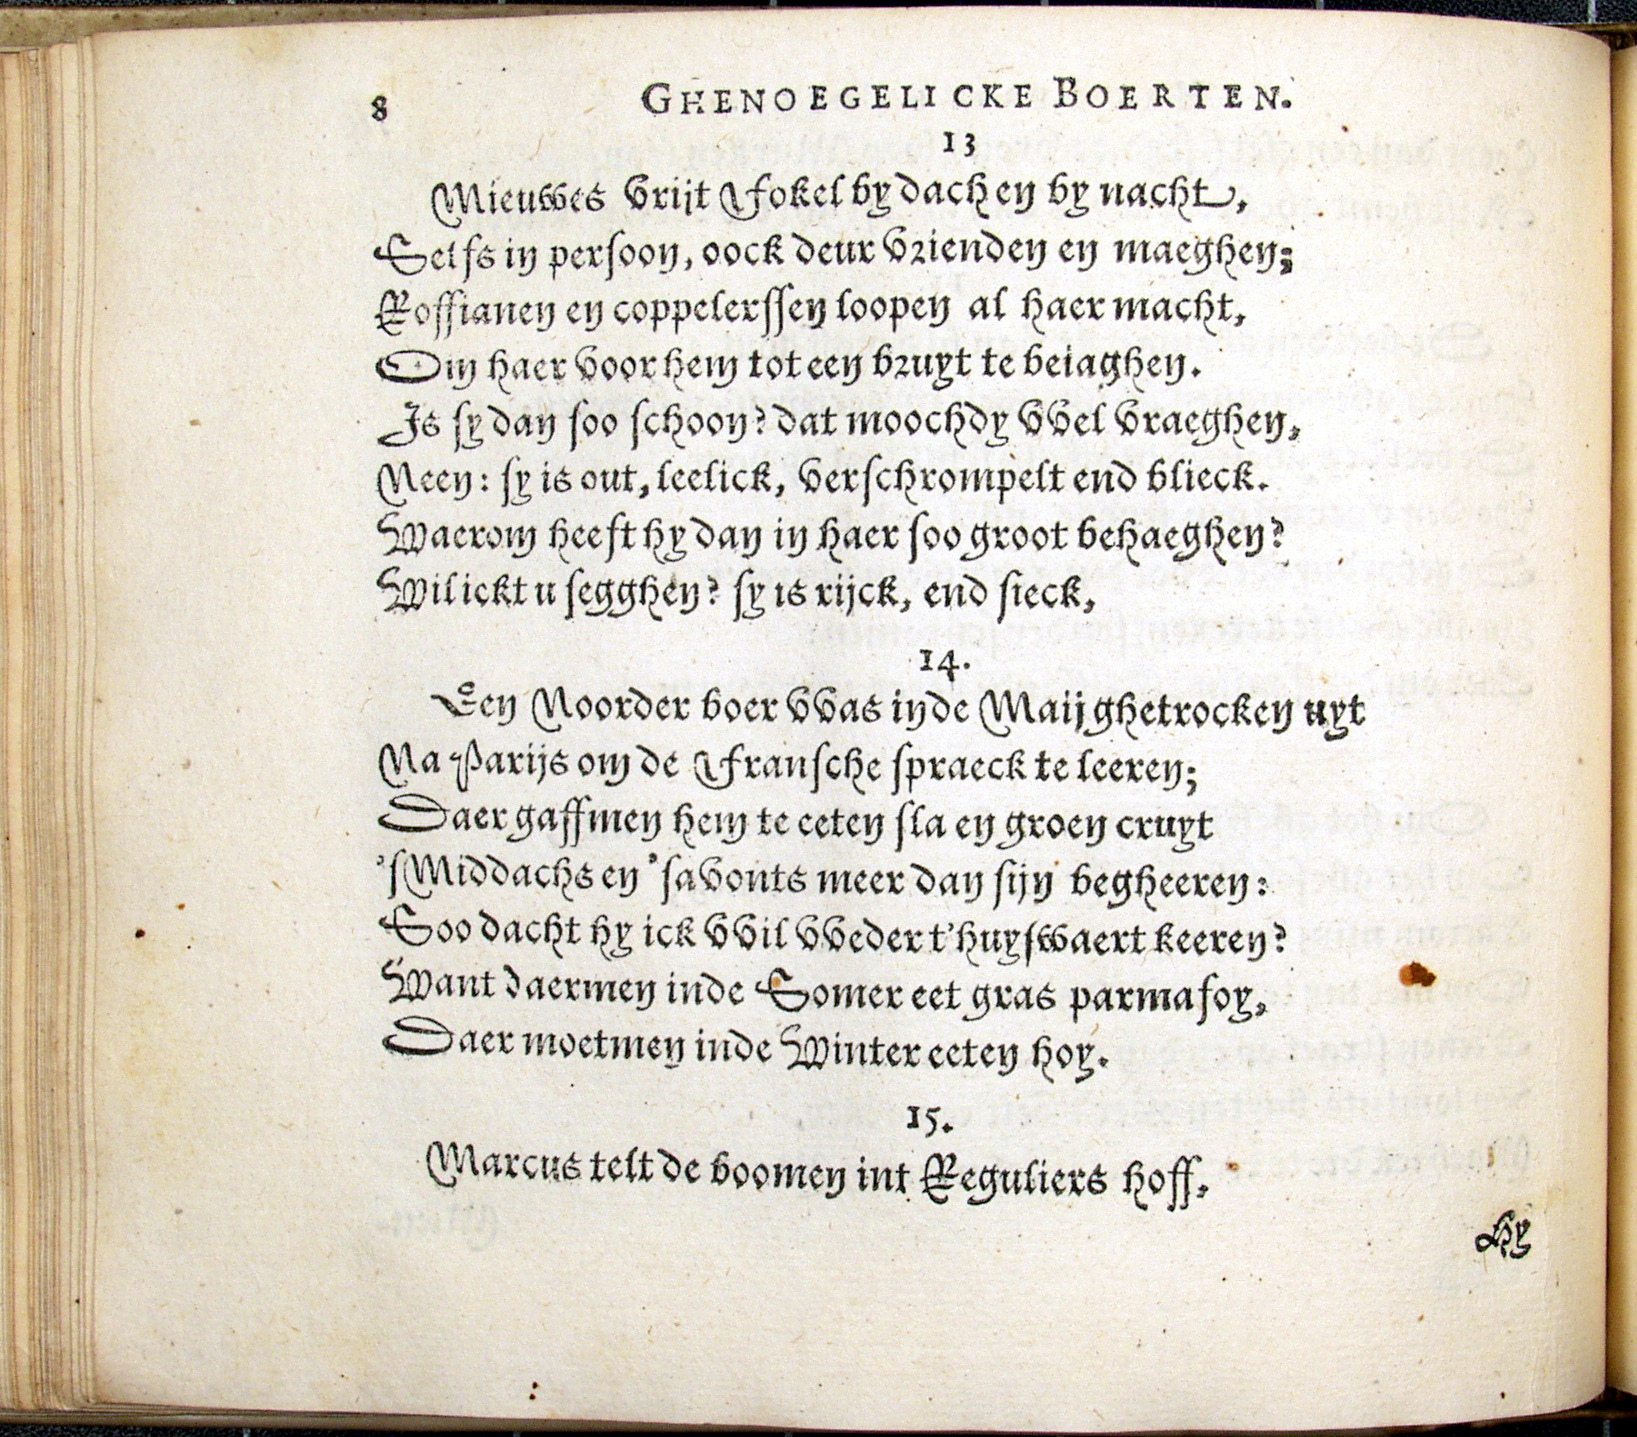 8 GHENOEGELICKE BOERTEN.
13
Mieuwes vrijt Fokel by dach en by nacht,
Selfs in persoon, oock deur vrienden en maeghen;
Roffianen en coppelerssen loopen al haer macht,
Om haer voor hem tot een bruyt te beiaghen.
Is sy dan soo schoon? dat moochdy vvel vraeghen,
Neen: sy is out, leelick, verschrompelt end blieck.
Waerom heeft hy dan in haer soo groot behaeghen?
Wil ickt u segghen? sy is rijck, end sieck,
14.
Een Noorder boer vvas inde Maij ghetrocken uyt
Na Parijs om de Fransche spraeck te leeren;
Daer gaffmen hem te eeten sla en groen cruyt
's Middachs en 's avonts meer dan sijn begheeren:
Soo dacht hy ick vvil vveder t'huyswaert keeren?
Want daermen inde Somer eet gras parmafoy,
Daer moetmen inde Winter eeten hoy.
15.
Marcus telt de boomen int Reguliers hoff,
Hy